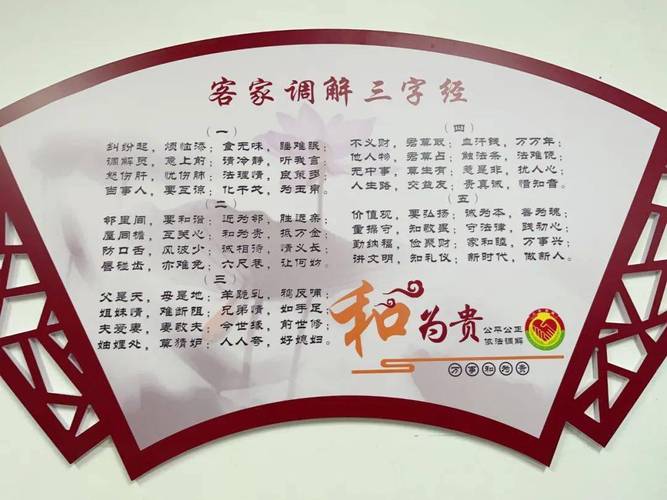 客家调解三字经
（一）
纠纷起，烦恼添；食无味，睡难眠；
调解员，急上前；请冷静，听我言；
怒伤肝，忧伤肺；法理情，良策多；
当事人，要互谅；化干戈，为玉帛。
（二）
邻里间，要和谐；近为邻，胜远亲；
屋同檐，互关心；和为贵，抵万金；
防口舌，风波少；诚相待，情义长；
唇碰齿，亦难免；六尺巷，让何妨。
（三）
父是天，母是地；羊跪乳，鸦反哺；
姐妹情，难断阻；兄弟情，如手足；
夫爱妻，妻敬夫；今世缘，前世修；
妯娌处，莫猜妒；人人夸，好媳妇。
（四）
不义财，君莫取；血汗钱，万万年；
他人物，君莫占；触法条，法难饶；
无中事，莫生有；惹是非，扰人心；
人生路，交益友；贵真诚，惜知音。
（五）
价值观，要弘扬；诚为本，善为魂；
重操守，知敬畏；守法律，践初心；
勤纳福，俭聚财；家和睦，万事兴；
讲文明，知礼仪；新时代，做新人。
和为贵
公平公正
依法调解
万事和为贵